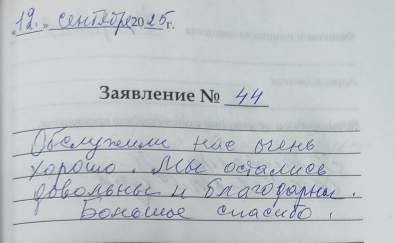 "12." сентября 2025 г.
Заявление № 44
Обслужили нас очень
хорошо. Мы остались
довольны и благодарны.
Большое спасибо.